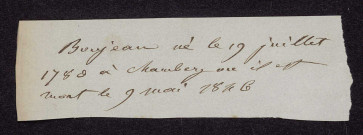 Bonjean né le 19 juillet
1780 à Chambery ou il est
mort le 9 mai 1846